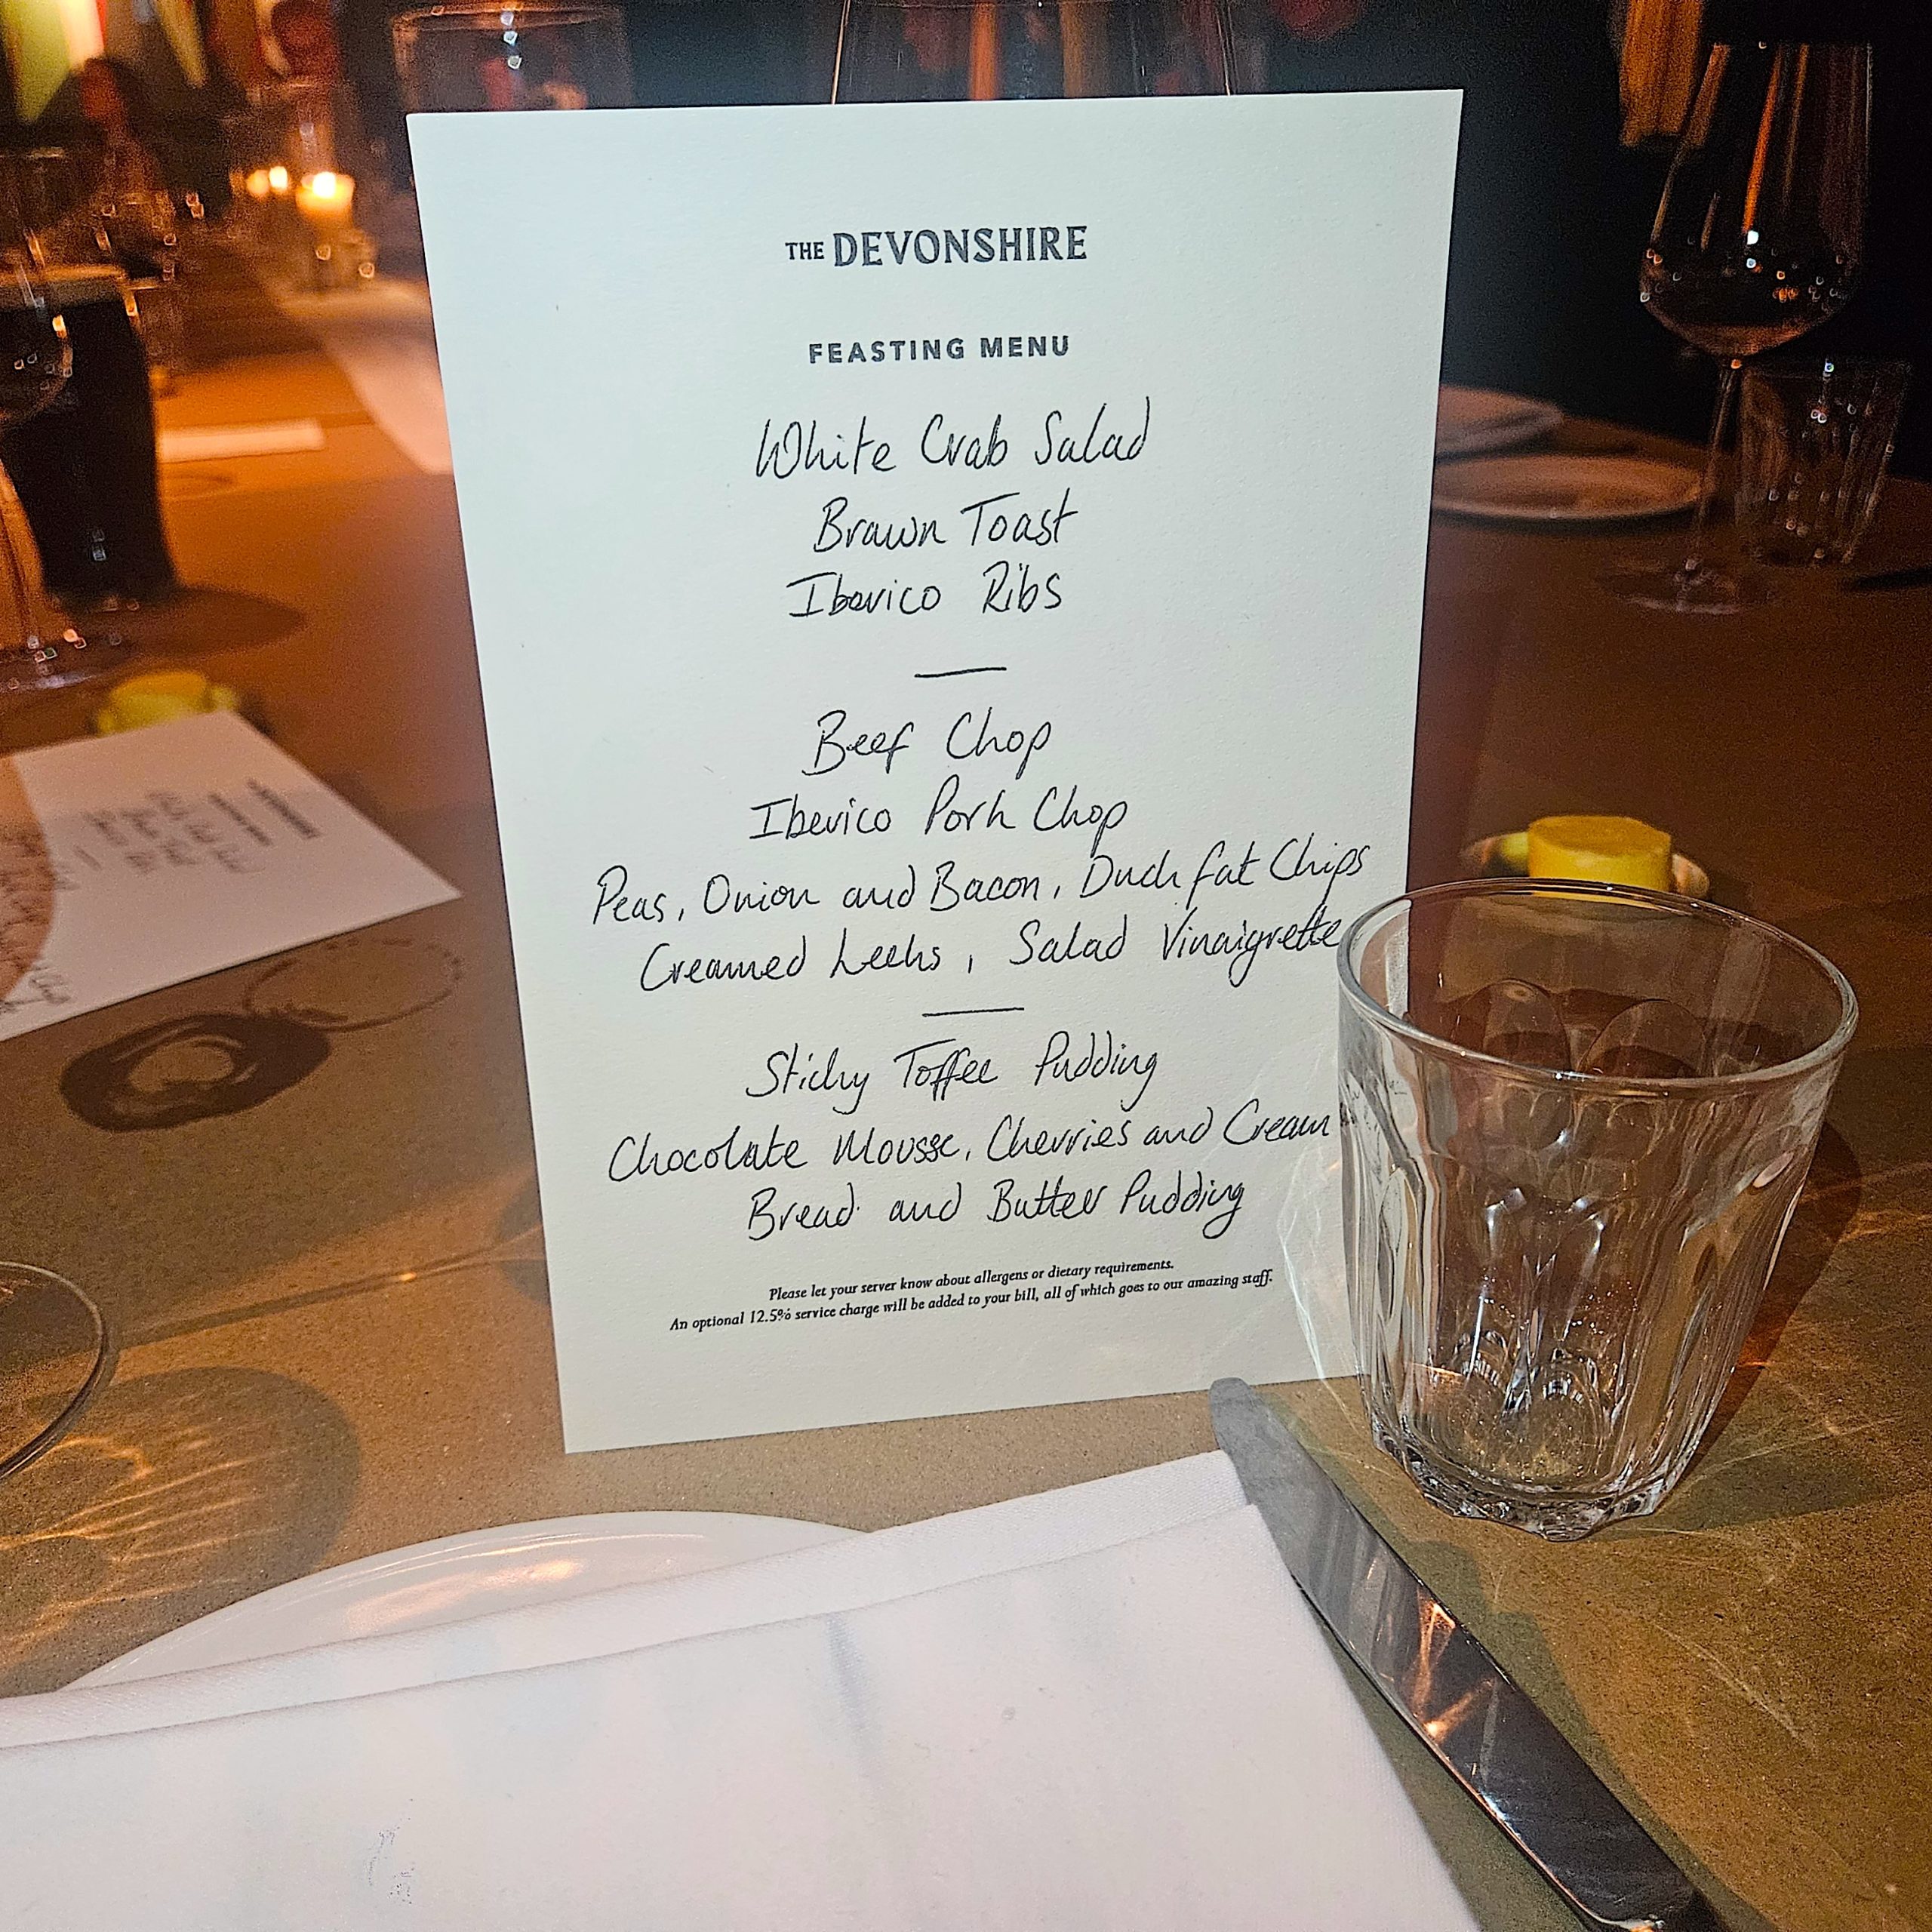 THE DEVONSHIRE
FEASTING MENU
White Crab Salad
Brawn Toast
Iberico Ribs
Beef Chop
Iberico Pork Chop
Peas, Onion and Bacon, Duck fat Chips
Creamed Leeks, Salad Vinaigrette
Sticky Toffee Pudding
Chocolate Mousse, Cherries and Cream
Bread and Butter Pudding
Please let your server know about allergens or dietary requirements.
An optional 12.5% service charge will be added to your bill, all of which goes to our amazing staff.